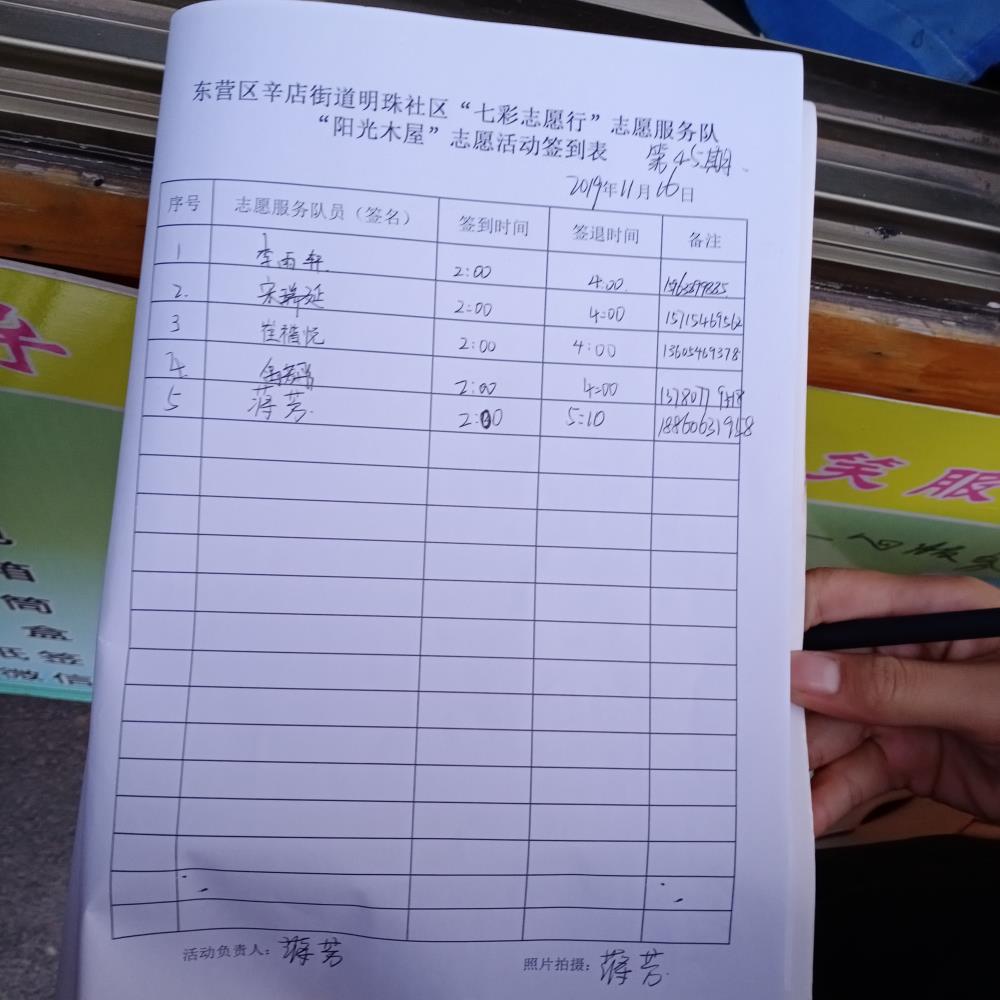 东营区辛店街道明珠社区“七彩志愿行”志愿服务队
“阳光木屋”志愿活动签到表 第45期
2019年11月16日
序号 志愿服务队员（签名） 签到时间 签退时间 备注
1 李雨轩 2:00 4:00
2. 宋瑞延 2:00 4:00 15715469562
3 崔梧悦 2:00 4:00 13605469378
4. 2:00 4:00
5 蒋芳 2:00 5:10
活动负责人：蒋芳 照片拍摄：蒋芳
笑服
筒
盒
纸签
微信